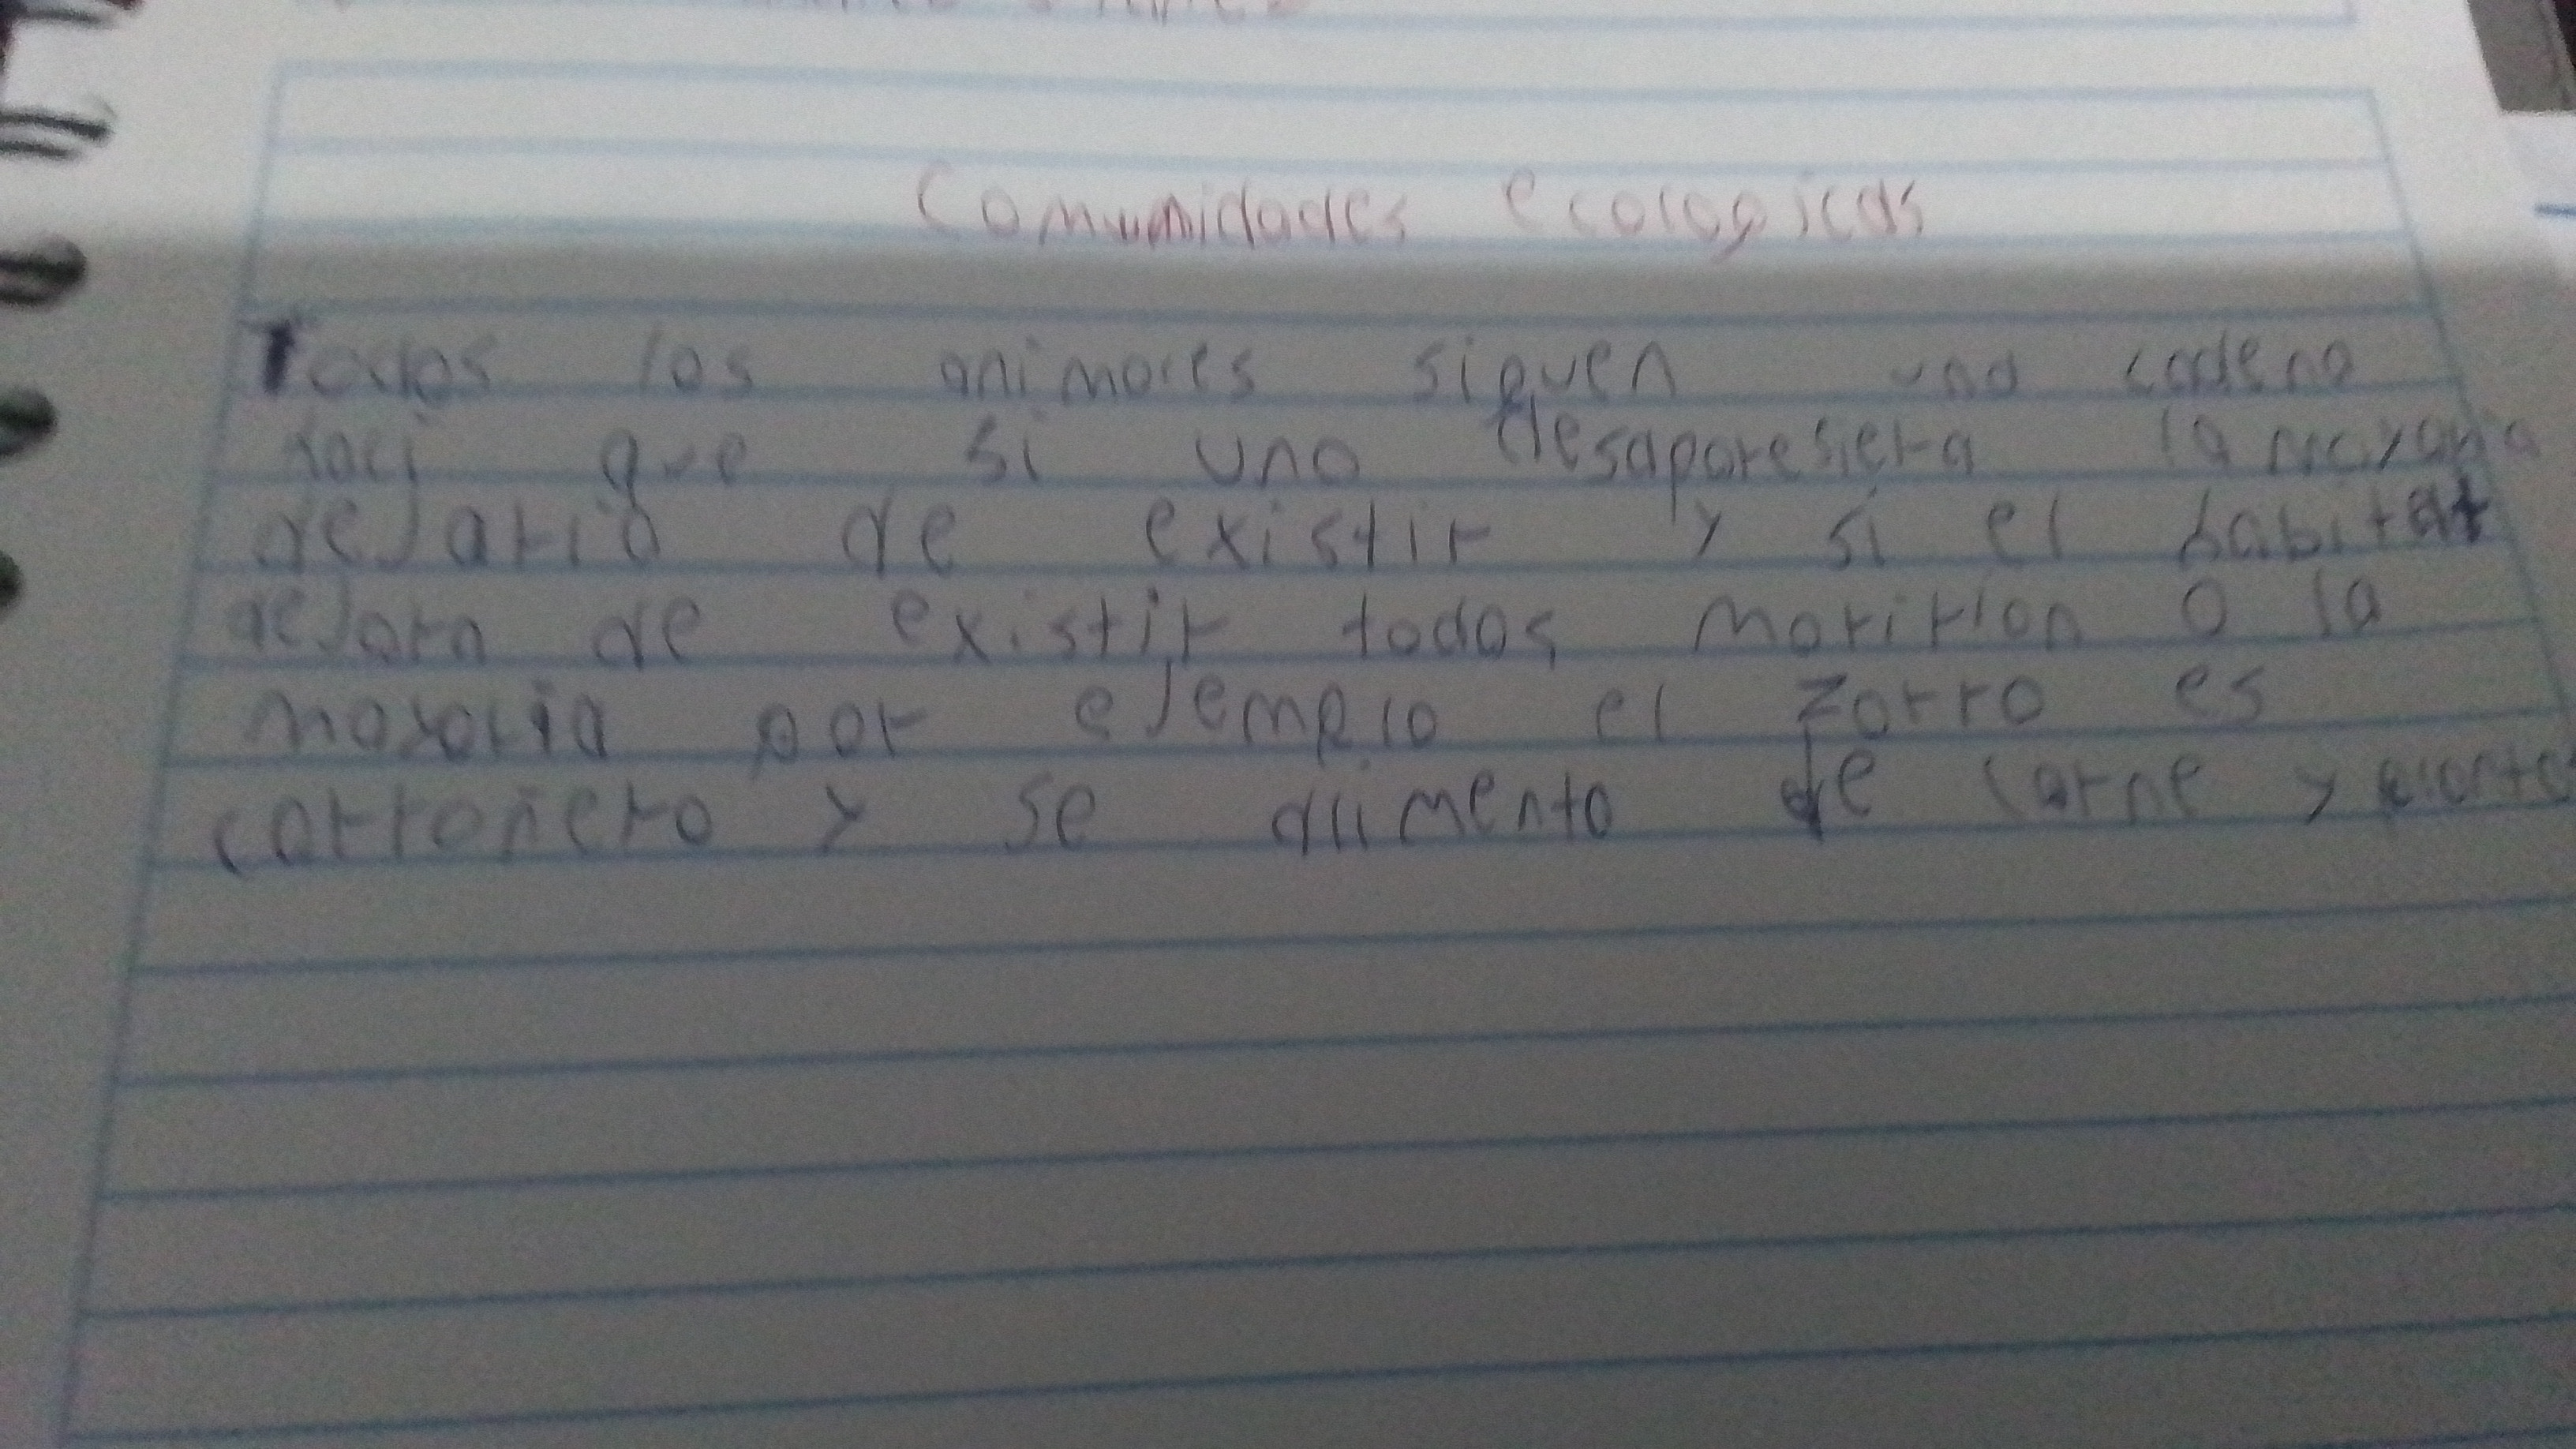 Comunidades ecologicas
Todos los animales siguen una cadena
haci que si uno desaparesiera la mayoria
dejaria de existir y si el habitat
dejara de existir todos moririan o la
mayoria por ejemplo el zorro es
carroñero y se alimenta de carne y